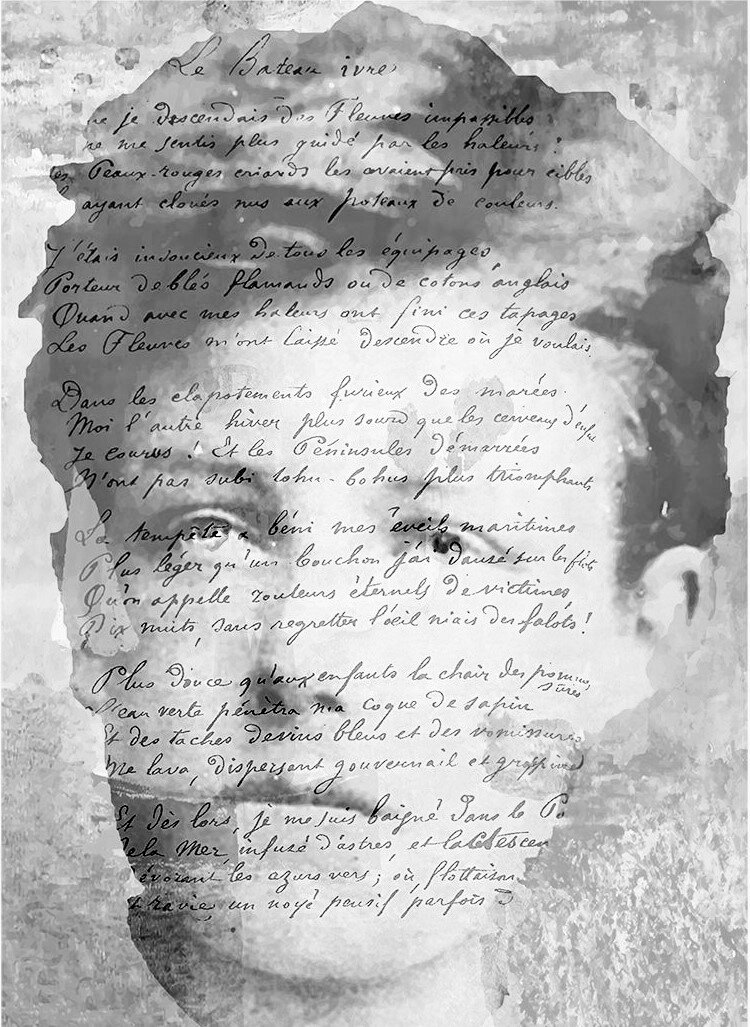 Le Bateau ivre
je descendais des Fleuves impassibles
ne me sentis plus guidé par les haleurs :
Peaux-rouges criards les avaient pris pour cibles
ayant cloués nus aux poteaux de couleurs.
J'étais insoucieux de tous les équipages
Porteur de blés flamands ou de cotons anglais
Quand avec mes haleurs ont fini ces tapages
Les Fleuves m'ont laissé descendre où je voulais.
Dans les clapotements furieux des marées
Moi l'autre hiver plus sourd que les cerveaux d'enfants
Je courus ! Et les Péninsules démarrées
N'ont pas subi tohu-bohus plus triomphants
La tempête a béni mes éveils maritimes
Plus léger qu'un bouchon j'ai dansé sur les flots
Qu'on appelle rouleurs éternels de victimes
Dix nuits, sans regretter l'oeil niais des falots !
Plus douce qu'aux enfants la chair des pommes sures
L'eau verte pénétra ma coque de sapin
Et des taches de vins bleus et des vomissures
Me lava, dispersant gouvernail et grappin
Et dès lors, je me suis baigné dans le Po
de la Mer, infusé d'astres, et
évorant les azurs vers ; où flottaison
ravie, un noyé pensif parfois